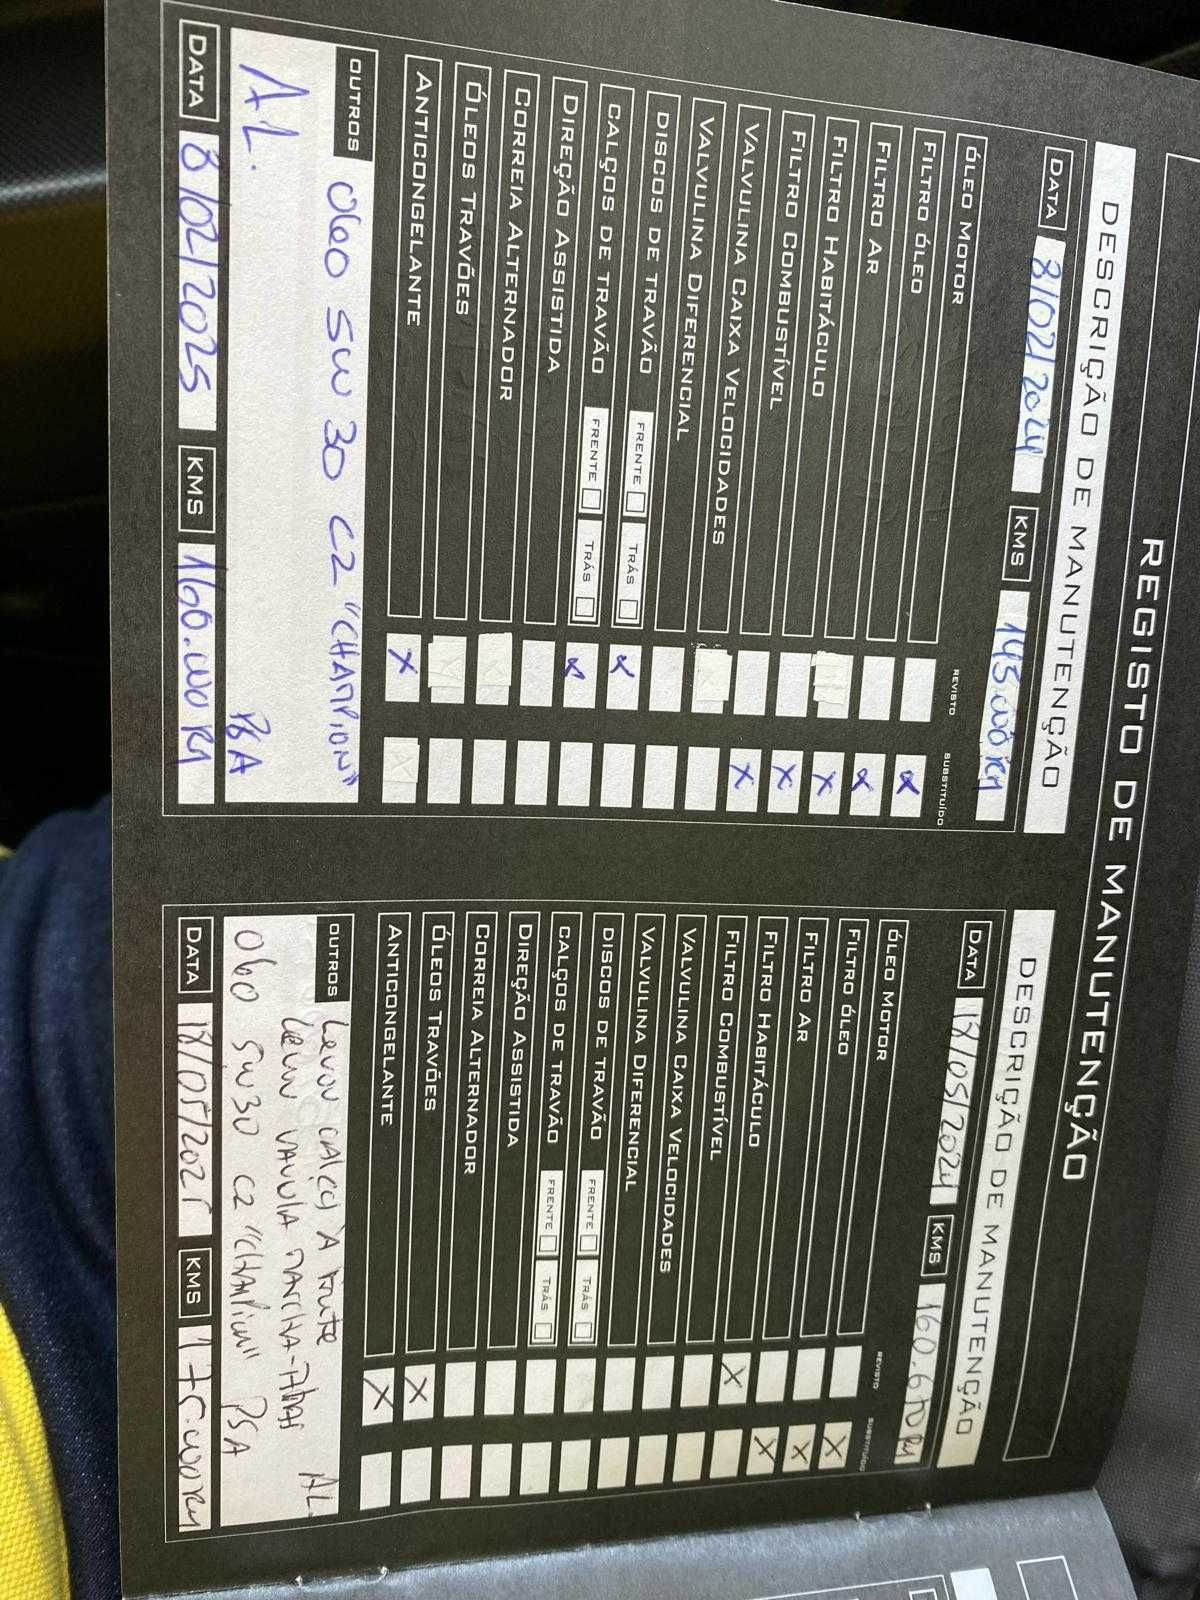 REGISTO DE MANUTENÇÃO
DESCRIÇÃO DE MANUTENÇÃO
DATA 8/02/2024 KMS 145.000 KM
REVISTO SUBSTITUÍDO
ÓLEO MOTOR
FILTRO ÓLEO
FILTRO AR
FILTRO HABITÁCULO
FILTRO COMBUSTÍVEL
VALVULINA CAIXA VELOCIDADES
VALVULINA DIFERENCIAL
DISCOS DE TRAVÃO FRENTE TRÁS
CALÇOS DE TRAVÃO FRENTE TRÁS
DIREÇÃO ASSISTIDA
CORREIA ALTERNADOR
ÓLEOS TRAVÕES
ANTICONGELANTE
OUTROS Oleo 5W30 C2 "CHAMPION"
AL. PSA
DATA 8/02/2025 KMS 160.000 KM
DESCRIÇÃO DE MANUTENÇÃO
DATA 18/05/2024 KMS 160.670 KM
REVISTO SUBSTITUÍDO
ÓLEO MOTOR
FILTRO ÓLEO
FILTRO AR
FILTRO HABITÁCULO
FILTRO COMBUSTÍVEL
VALVULINA CAIXA VELOCIDADES
VALVULINA DIFERENCIAL
DISCOS DE TRAVÃO FRENTE TRÁS
CALÇOS DE TRAVÃO FRENTE TRÁS
DIREÇÃO ASSISTIDA
CORREIA ALTERNADOR
ÓLEOS TRAVÕES
ANTICONGELANTE
OUTROS Levou calços à frente
Levou vavula marcha-trás AL.
Oleo 5W30 C2 "CHAMPION" PSA
DATA 18/05/2025 KMS 175.000 KM